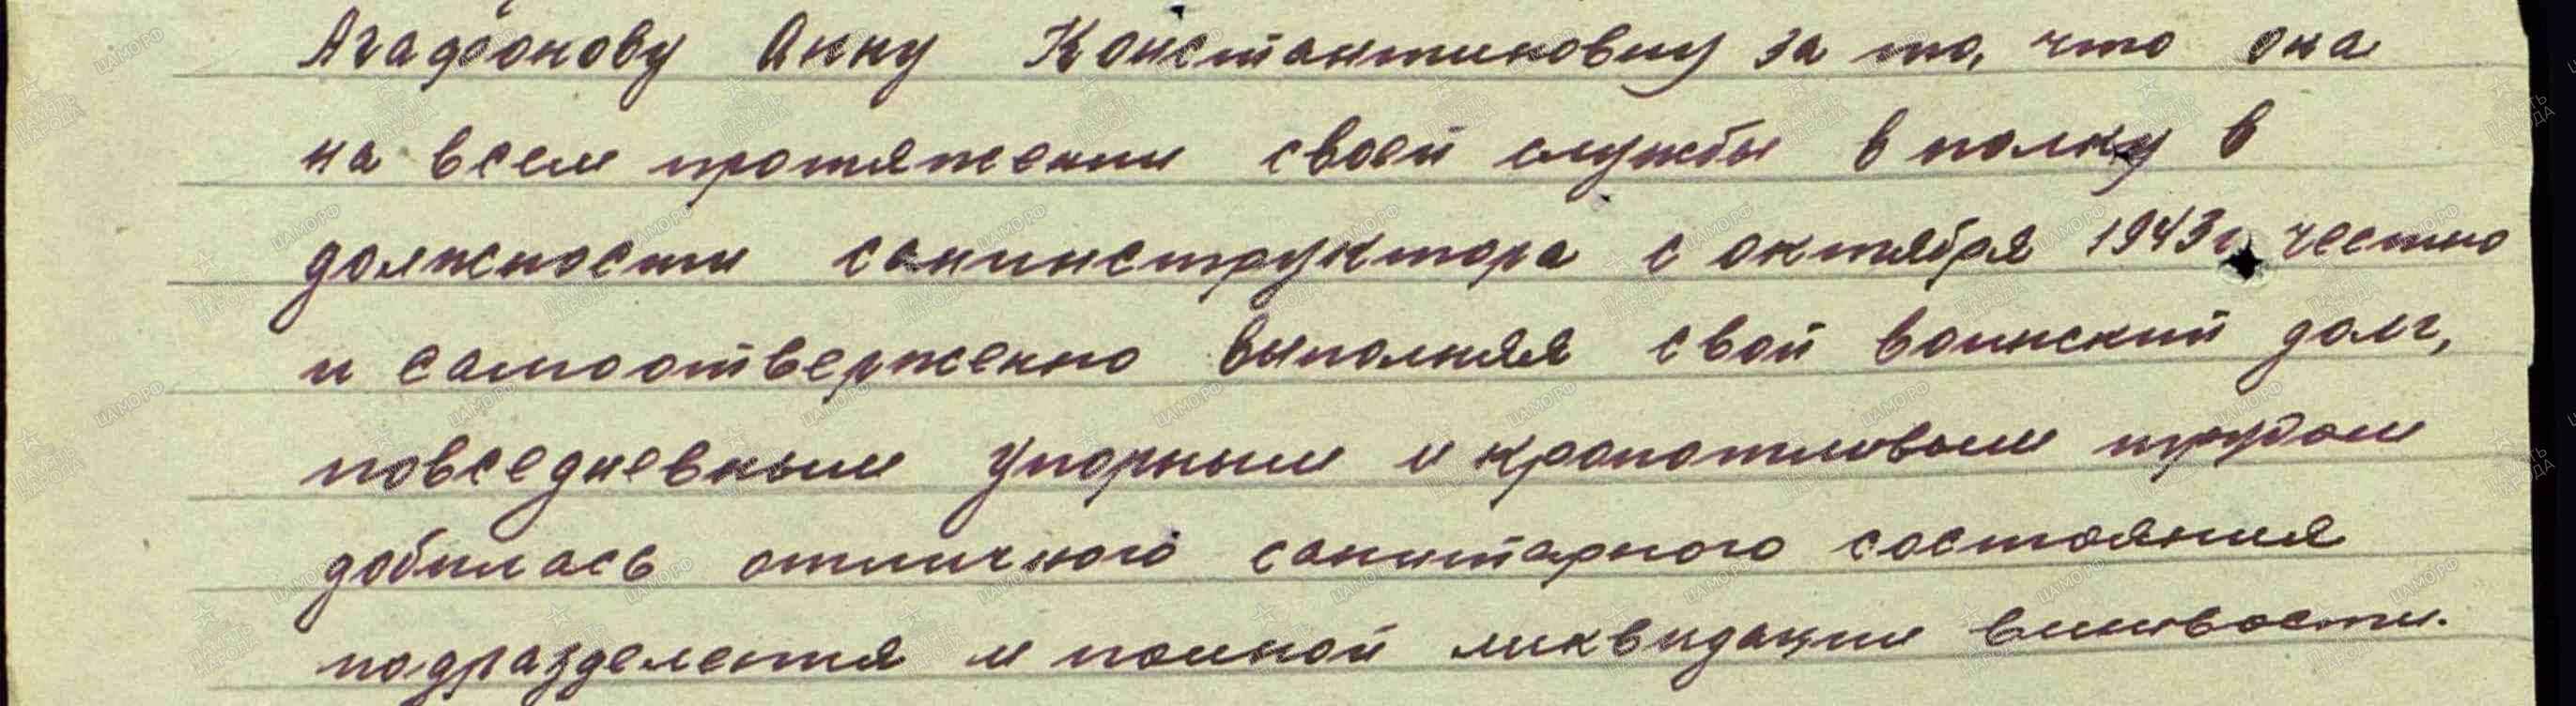 Агафонову Анну Константиновну за то, что она
на всем протяжении своей службы в полку в
должности санинструктора с октября 1943 г. честно
и самоотверженно выполняя свой воинский долг,
повседневным упорным и кропотливым трудом
добилась отличного санитарного состояния
подразделения и полной ликвидации вшивости.